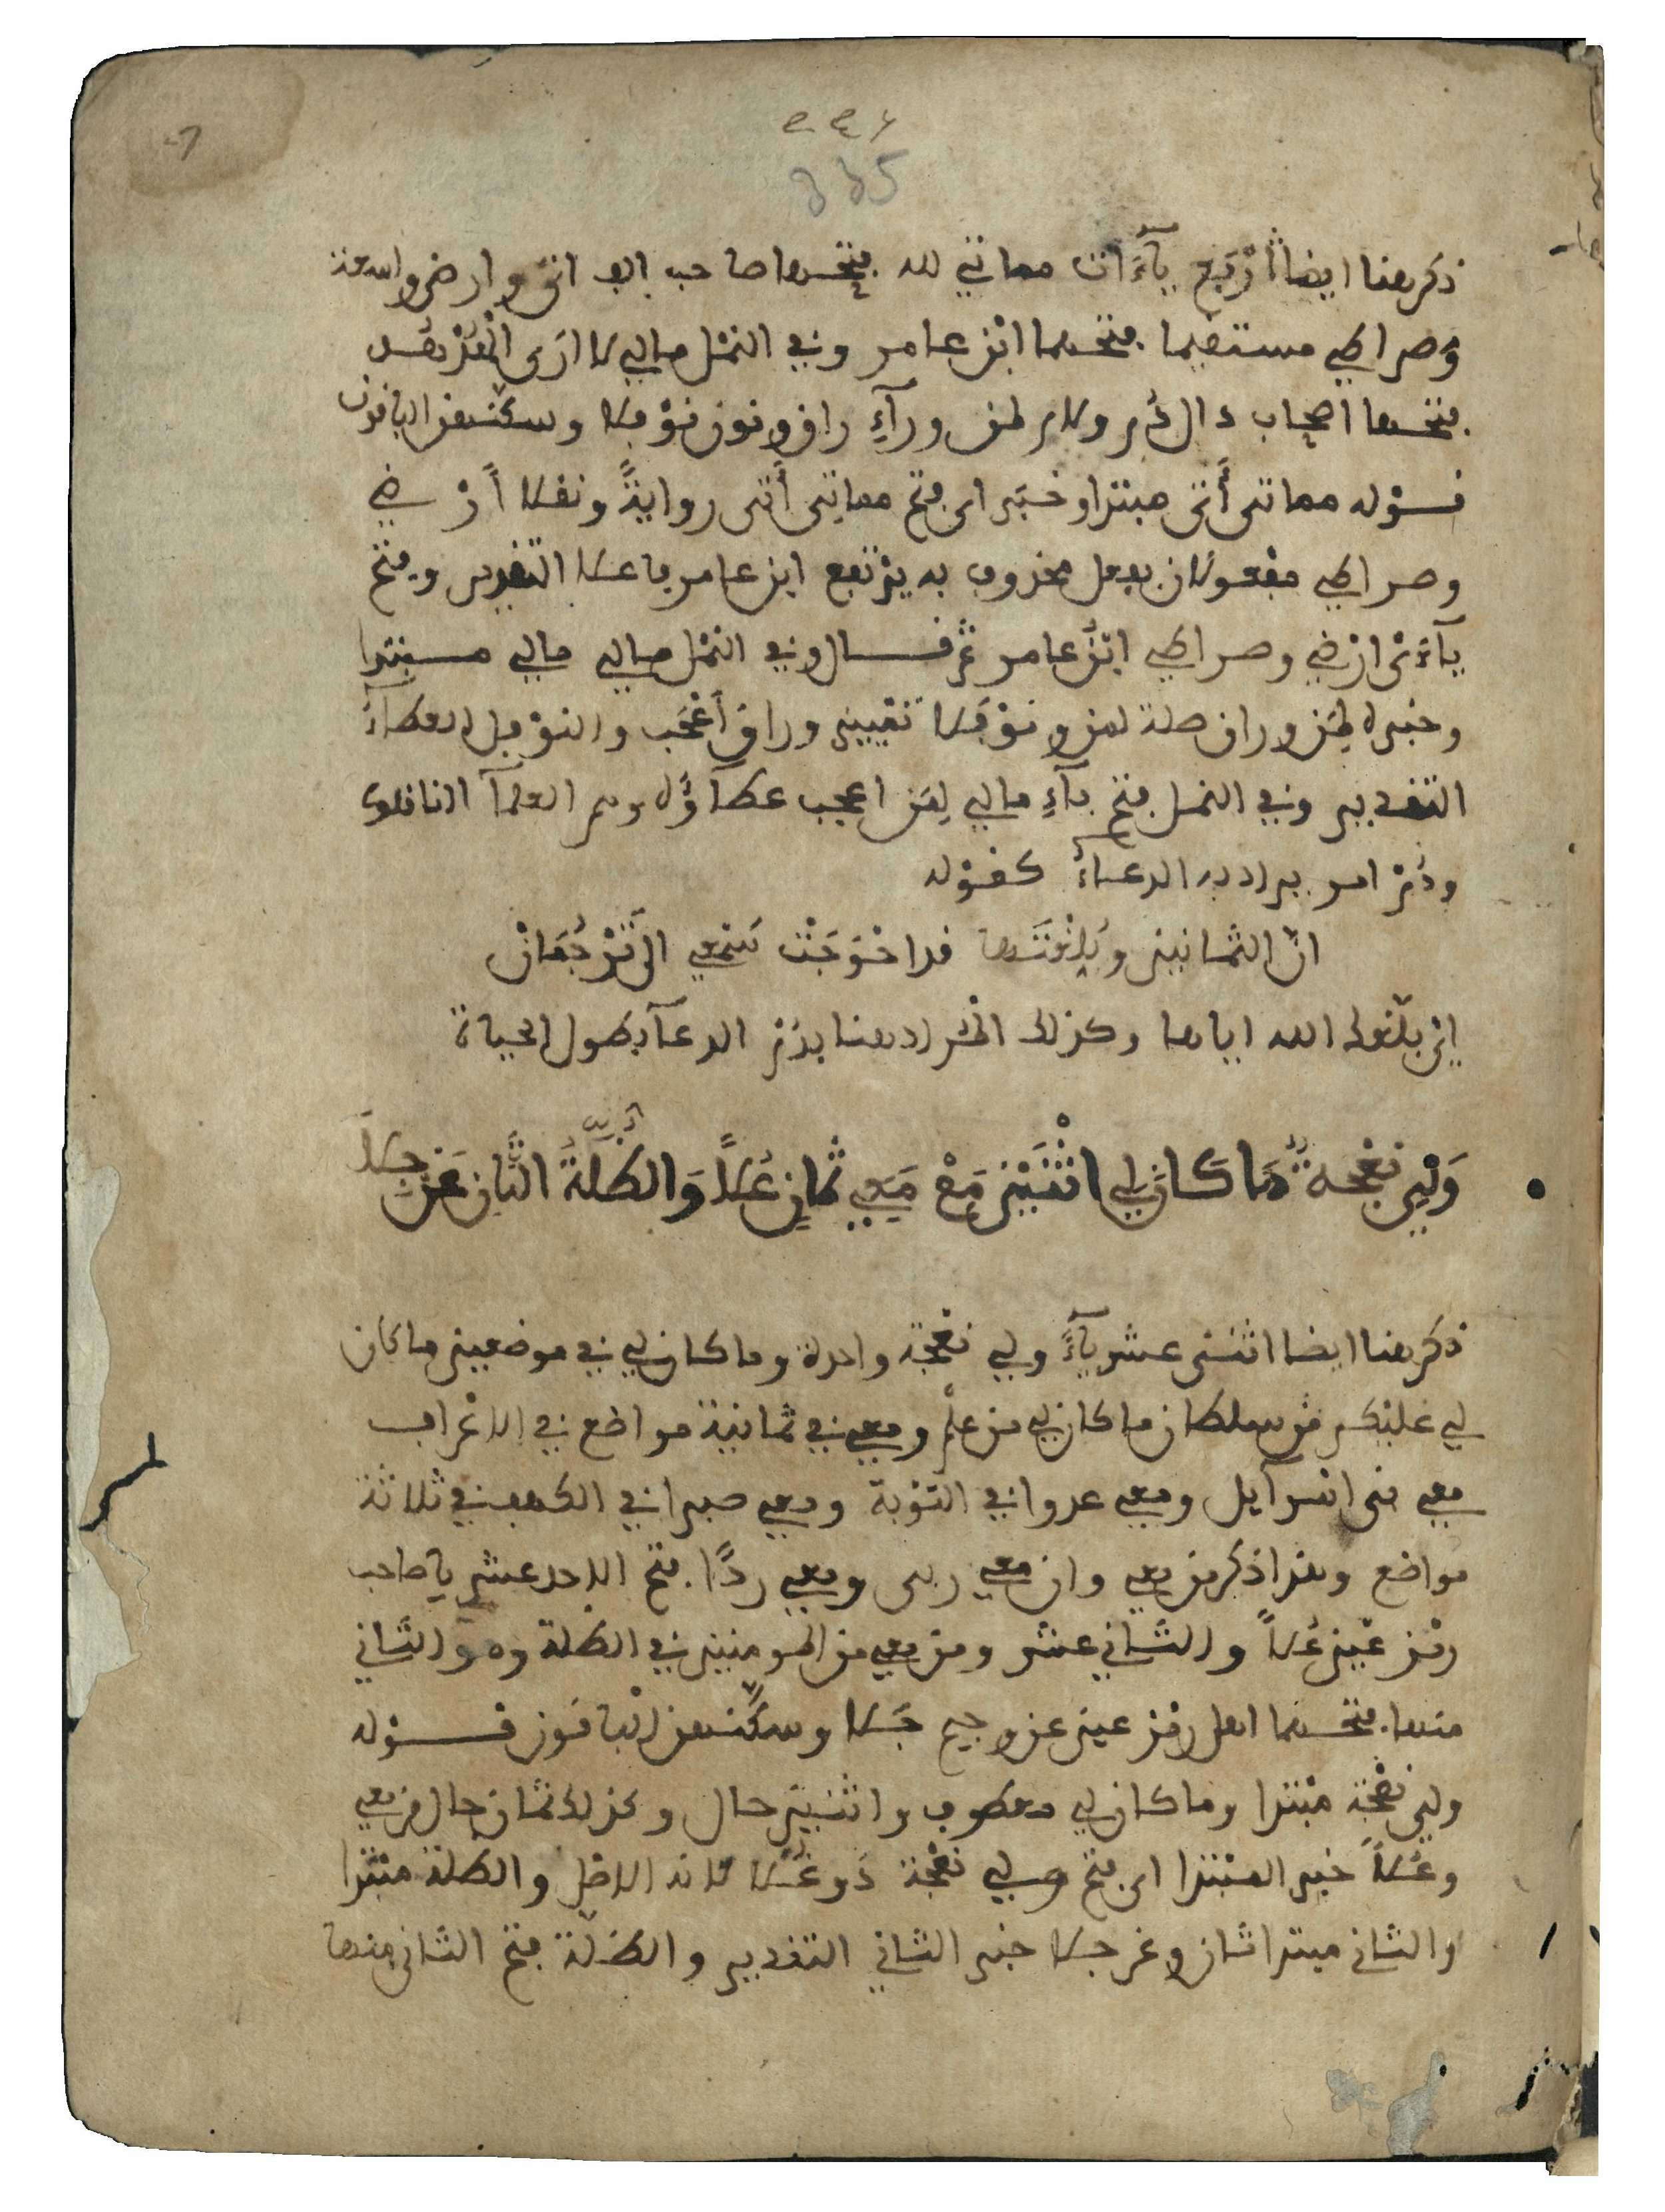 ذكر هنا ايضا أرْبَع يآءَات مماتي لله فتحها صاحب الف اتى وارضي واسعة
وصراطي مستقيما فتحهما ابن عامر وفي النمل مالي لا ارى الهدهد
فتحها اصحاب دال دم ولام لمن ورآءِ راق ونون نوفلا وسكنهن الباقون
قوله مماتي أتى مبتدا وخبر اي فتح مماتي أتى روايةً ونقلا أرْضي
وصراطي مفعولان بفعل محذوف به يرتفع ابن عامر فاعلا التقدير وفتح
يآءَىْ ارْضي وصراطي ابْنُ عامر ثم قال وفي النمل مالي مالي مبتدا
وخبره لمن وراق صلة لمن ونوفلا تمييز وراق أعْجَب والنوفل العطاءُ
التقدير وفي النمل فتح يآءِ مالي لمن اعجب عطآؤُه وهم العلمآ الناقلون
ودُمْ امر يراد به الدعاءُ كقوله
انّ الثمانين وبُلِّغْتَها قد احْوَجَتْ سَمْعي الى تَرْجُمَانْ
اي بلّغك الله اياها وكذلك المراد هنا بدُمْ الدعآ بطول الحياة
وَلِي نَعْجةٌ مَا كَانَ لِي اثْنَيْنِ مَعْ مَعِي ثَمَانٍ عُلاً وَالظُّلَّةُ الثَّانِ عَنْ جِلَا
ذكر هنا ايضا اثنتى عشر يآءً ولي نعجة واحدة وما كان لي في موضعين ما كان
لي عليكم من سلطان ما كان لي من علْم ومعي في ثمانية مواضع في الاعْراف
معي بني اسرآيل ومعي عدوا في التوْبة ومعي صبرا في الكهف في ثلاثة
مواضع وهذا ذكر من معي وان معي ربي ومعي ردًا فتح الاحد عشر يا صاحب
رمْز عيْن عُلاً والثاني عشر ومن معي من المومنين في الظلة وهو الثاني
منها فتحهما اهل رمْز عين عن وجيم جَلا وسكّنهن الباقون قوله
ولي نعْجة مبْتدا وما كان لي معطوف واثنيْن حال وكذلك ثمان حال من معي
وعُلاً خبر المبْتدا اي فتح ولي نعْجة ذو عُلا لانه الاصْل والظلة مبْتدا
والثاني مبتدا ثان وعن جلا خبر الثاني التقدير والظلة فتح الثاني منها